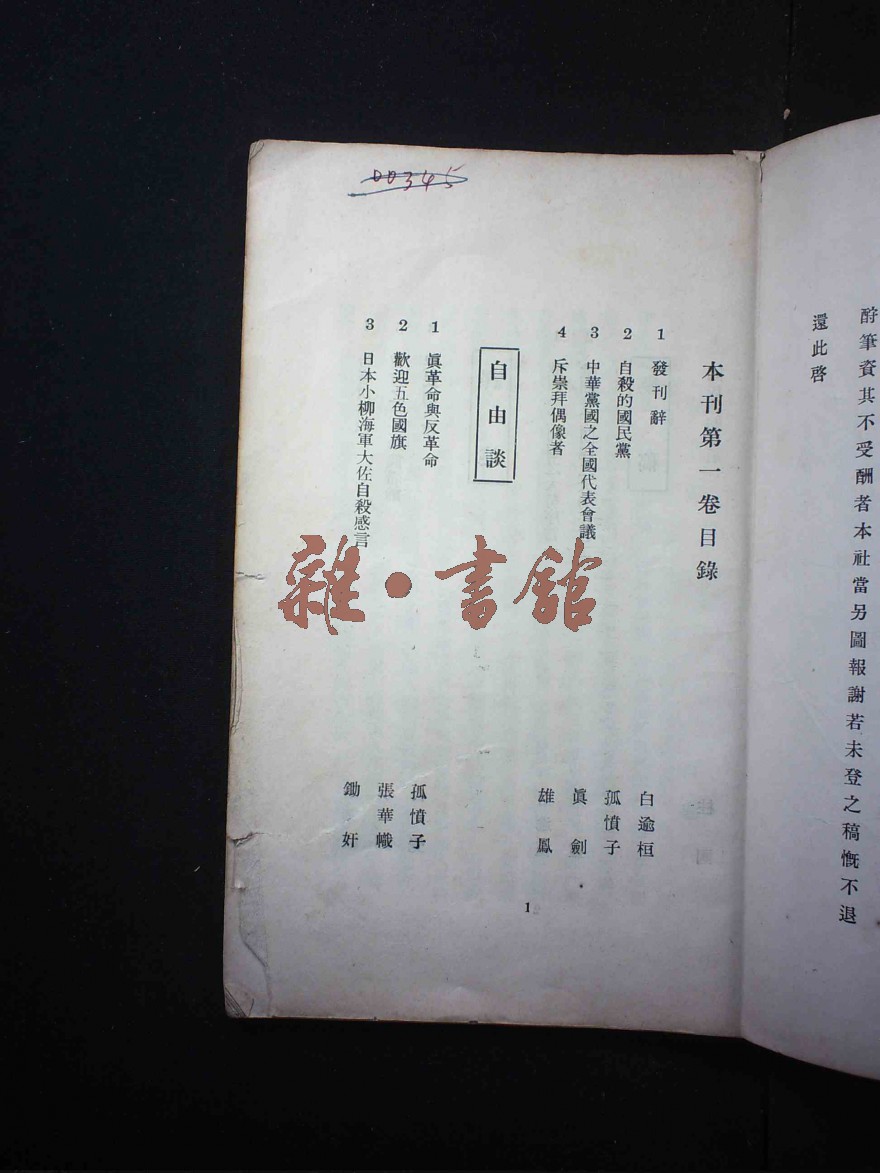 酵筆資其不受酬者本社當另圖報謝若未登之稿慨不退
還此啓
00345
本刊第一卷目錄
1 發刊辭 白逾桓
2 自殺的國民黨 孤憤子
3 中華黨國之全國代表會議 眞劍
4 斥崇拜偶像者 雄鳳
自由談
1 眞革命與反革命 孤憤子
2 歡迎五色國旗 張華幟
3 日本小柳海軍大佐自殺感言 鋤奸
1
雜·書館